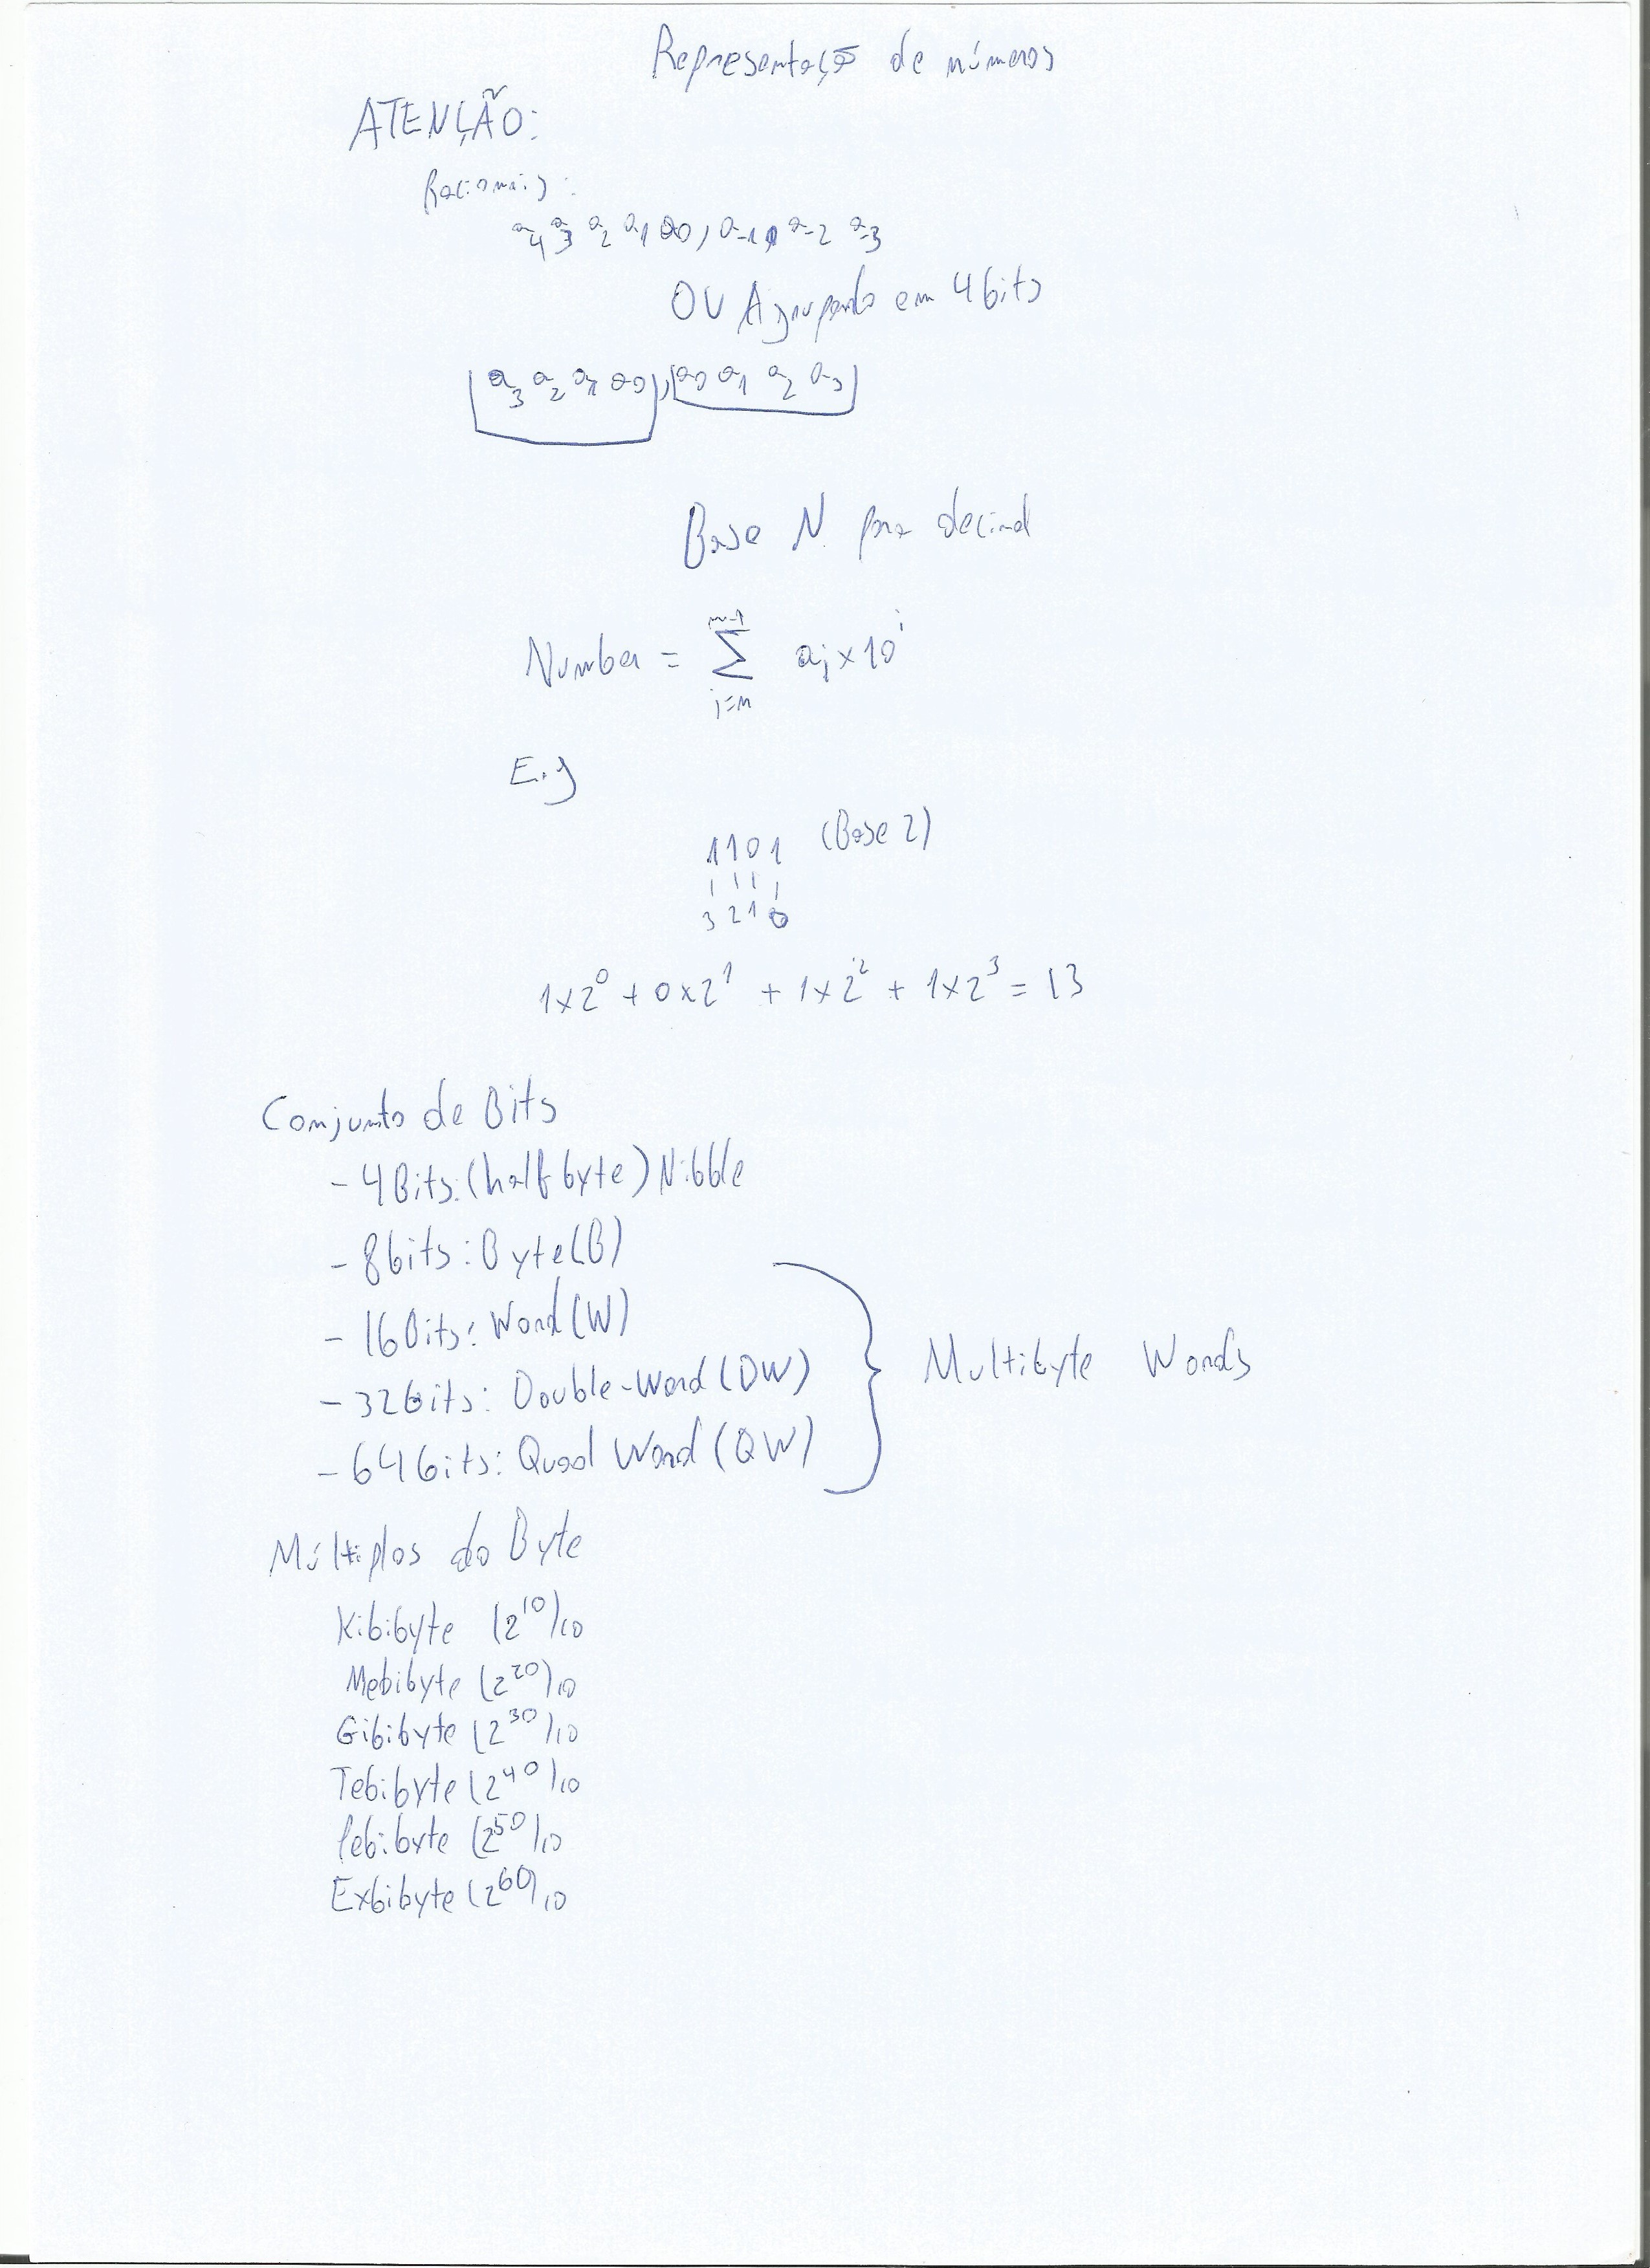 Representação de números
ATENÇÃO:
Racionais:
a4 a3 a2 a1 a0, a-1 a-2 a-3
OU Agrupando em 4 bits
a3 a2 a1 a0, a0 a1 a2 a3
Base N para decimal
n-1
Number = Σ ai x 10^i
i=n
E.g
1101 (Base 2)
3 2 1 0
1x2^0 + 0x2^1 + 1x2^2 + 1x2^3 = 13
Conjunto de Bits
- 4 Bits: (half byte) Nibble
- 8 bits: Byte (B)
- 16 Bits: Word (W)
- 32 bits: Double-Word (DW)
Multibyte Words
- 64 bits: Quad Word (QW)
Múltiplos do Byte
Kibibyte (2^10)10
Mebibyte (2^20)10
Gibibyte (2^30)10
Tebibyte (2^40)10
Pebibyte (2^50)10
Exbibyte (2^60)10